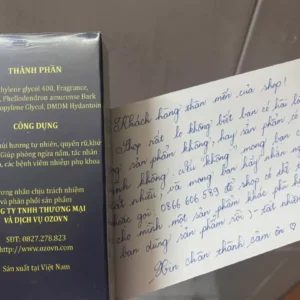 THÀNH PHẦN
thylene glycol 400, Fragrance,
Phellodendron amurense Bark
opylene Glycol, DMDM Hydantoin
CÔNG DỤNG
hương tự nhiên, quyến rũ, khử
Giúp phòng ngừa nấm, tác nhân
các bệnh viêm nhiễm phụ khoa
ương nhân chịu trách nhiệm
và phân phối sản phẩm
NG TY TNHH THƯƠNG MẠI
VÀ DỊCH VỤ OZOVN
SĐT: 0827.278.823
http://www.ozovn.com
Sản xuất tại Việt Nam
Khách hàng thân mến của shop!
Shop rất lo không biết bạn có hài
sản phẩm không, hay sản phẩm có
không. Nếu "không" mong bạn
và mong bạn hãy nhắn
hoặc gọi 0866 606 579 để shop có thể
cho mình một sản phẩm khác
bạn dùng sản phẩm rồi
Xin chân thành cảm ơn